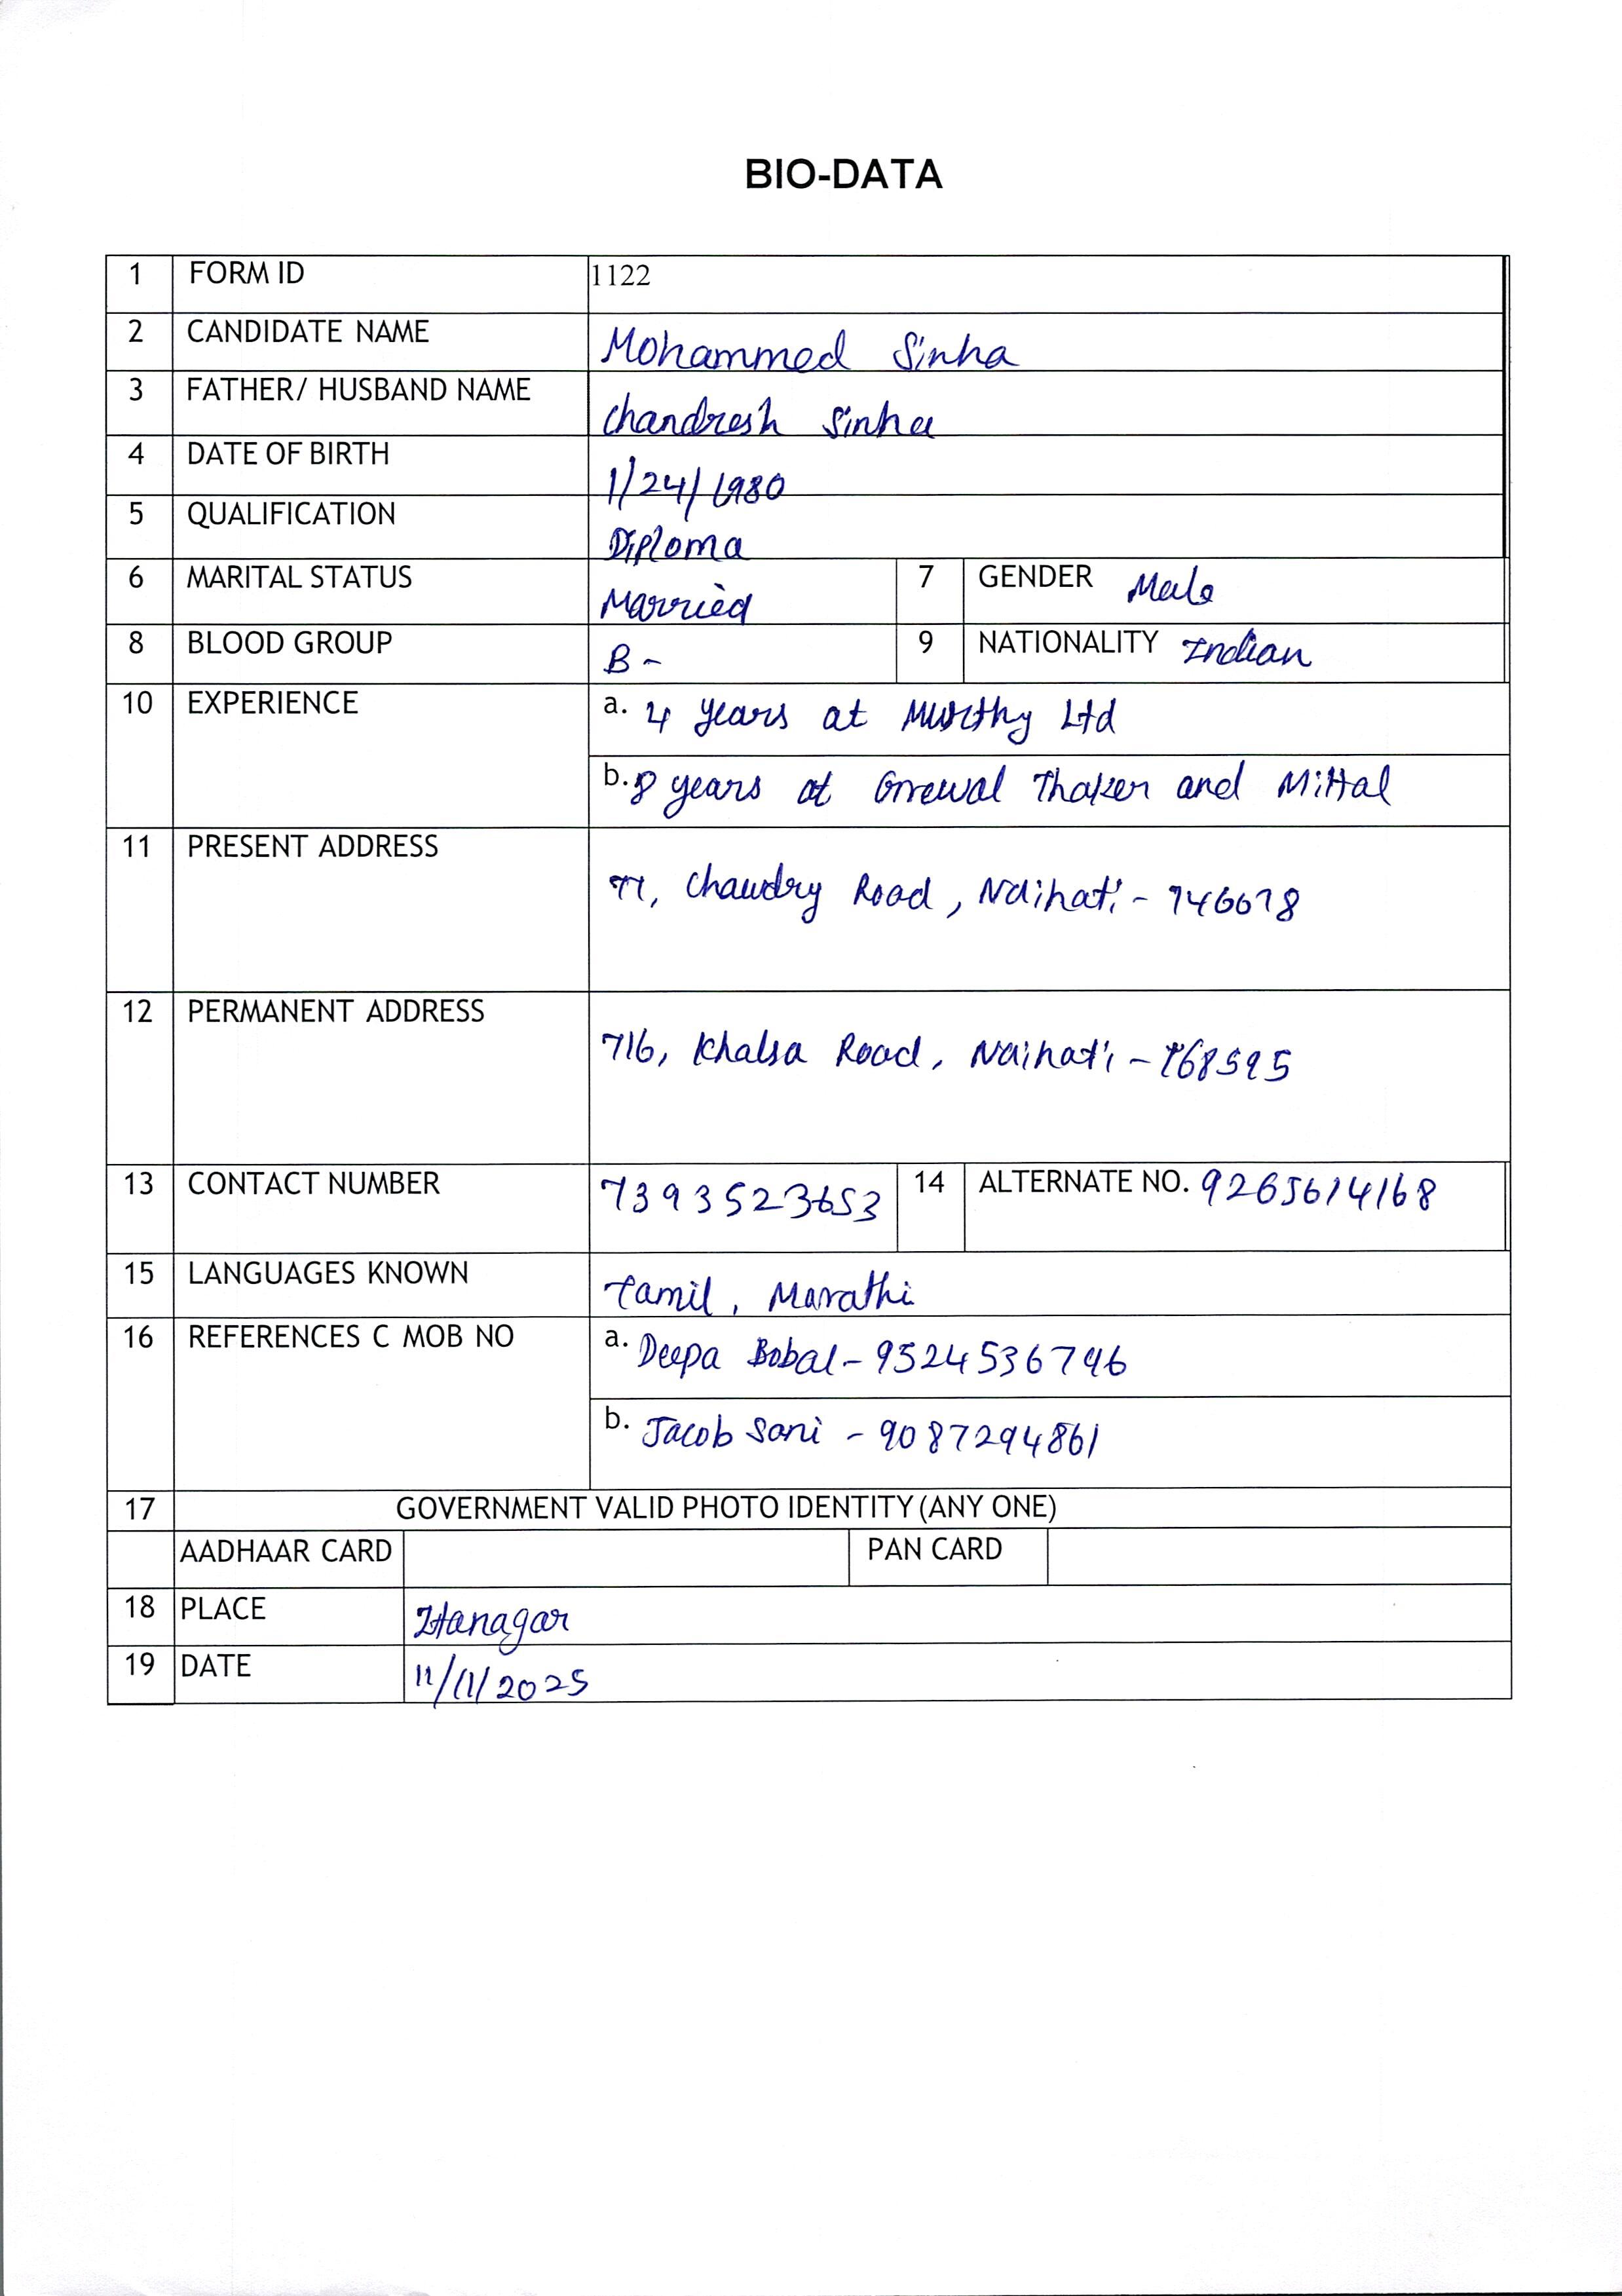 BIO-DATA
1 FORM ID 1122
2 CANDIDATE NAME Mohammed Sinha
3 FATHER/ HUSBAND NAME Chandresh Sinha
4 DATE OF BIRTH 1/24/1980
5 QUALIFICATION Diploma
6 MARITAL STATUS Married 7 GENDER Male
8 BLOOD GROUP B- 9 NATIONALITY Indian
10 EXPERIENCE a. 4 years at Murthy Ltd
b. 8 years at Grewal Thaker and Mittal
11 PRESENT ADDRESS
77, Chaudry Road, Naihati - 746678
12 PERMANENT ADDRESS
716, Khalsa Road, Naihati - 768595
13 CONTACT NUMBER 7393523653 14 ALTERNATE NO. 9265614168
15 LANGUAGES KNOWN Tamil, Marathi
16 REFERENCES C MOB NO a. Deepa Bobal - 9524536796
b. Jacob Sani - 9087294861
17 GOVERNMENT VALID PHOTO IDENTITY (ANY ONE)
AADHAAR CARD PAN CARD
18 PLACE Itanagar
19 DATE 11/11/2025